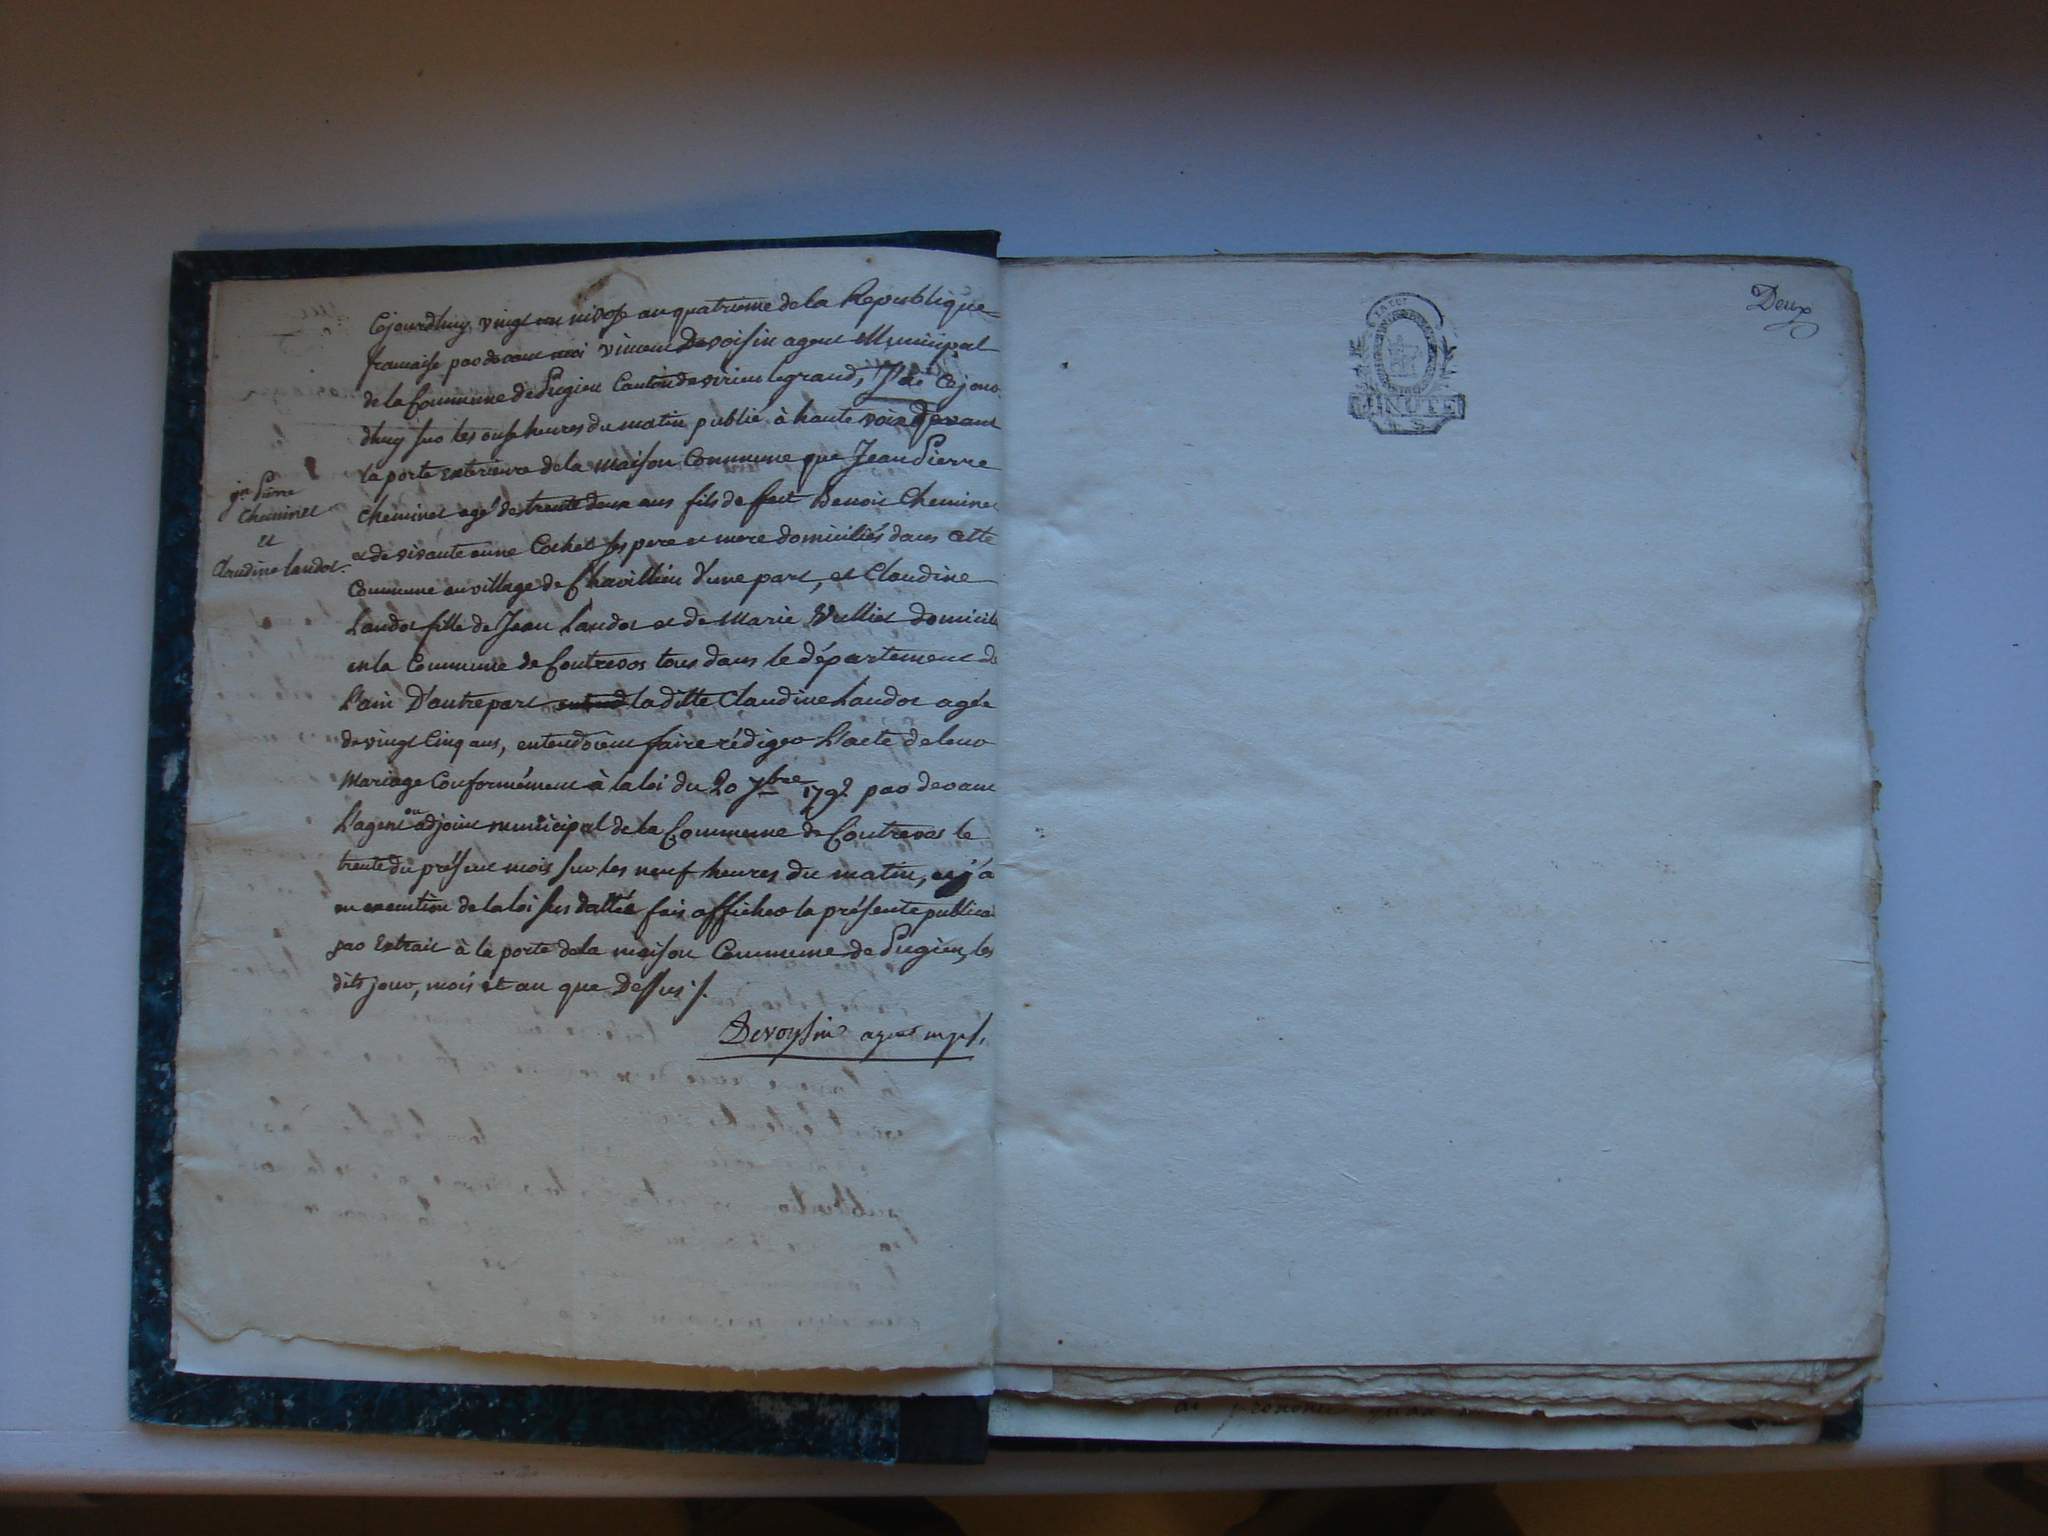 Cejourdhuy vingt un nivose an quatrieme de la Republique
francaise par devant moi vincent Devoisin agent Municipal
de la Commune de Pugieu Canton de virieu le grand, J'ai Cejour
dhuy sur les onse heures du matin publié à haute voix devant
la porte exterieure de la Maison Commune que Jean Pierre
Cheminet agé de trente deux ans fils de feu Benoit Cheminet
et de vivante anne Cochet ses pere et mere domiciliés dans cette
Commune au village de Chavillieu d'une part, et Claudine
Landot fille de Jean Landot et de Marie Vulliet domicili
en la Commune de Contrevos tous dans le département de
L'ain D'autre part la ditte Claudine Landot agée
de vingt Cinq ans, entendoient faire rédiger L'acte de leur
Mariage Conformément à la loi du 20 7bre 1792 par devant
L'agent ou adjoint municipal de la Commune de Contrevos le
trente du présent mois sur les neuf heures du matin, et j'a
en execution de la loi sus dattée fais afficher la présente publica
par Extrait à la porte de la maison Commune de Pugieu, les
dits jour, mois et an que Dessus ./.
Devoysin agent mpl,
jn Pierre
Cheminet
et
Claudine landot
Deux
LA LOI
MINUTE